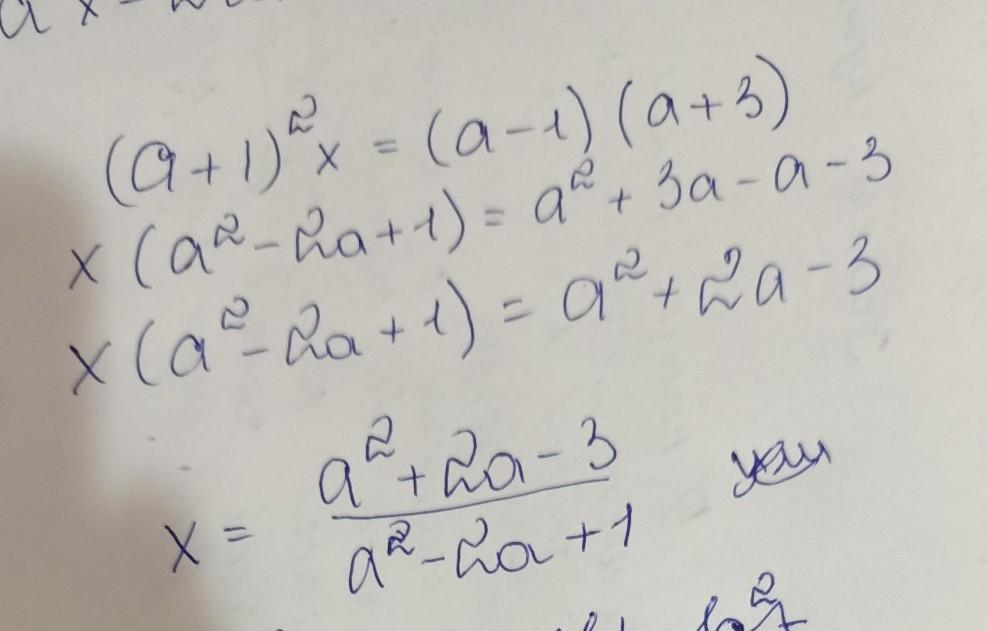 (a+1)²x = (a-1)(a+3)
x(a²-2a+1) = a²+3a-a-3
x(a²-2a+1) = a²+2a-3
x = (a²+2a-3)/(a²-2a+1)